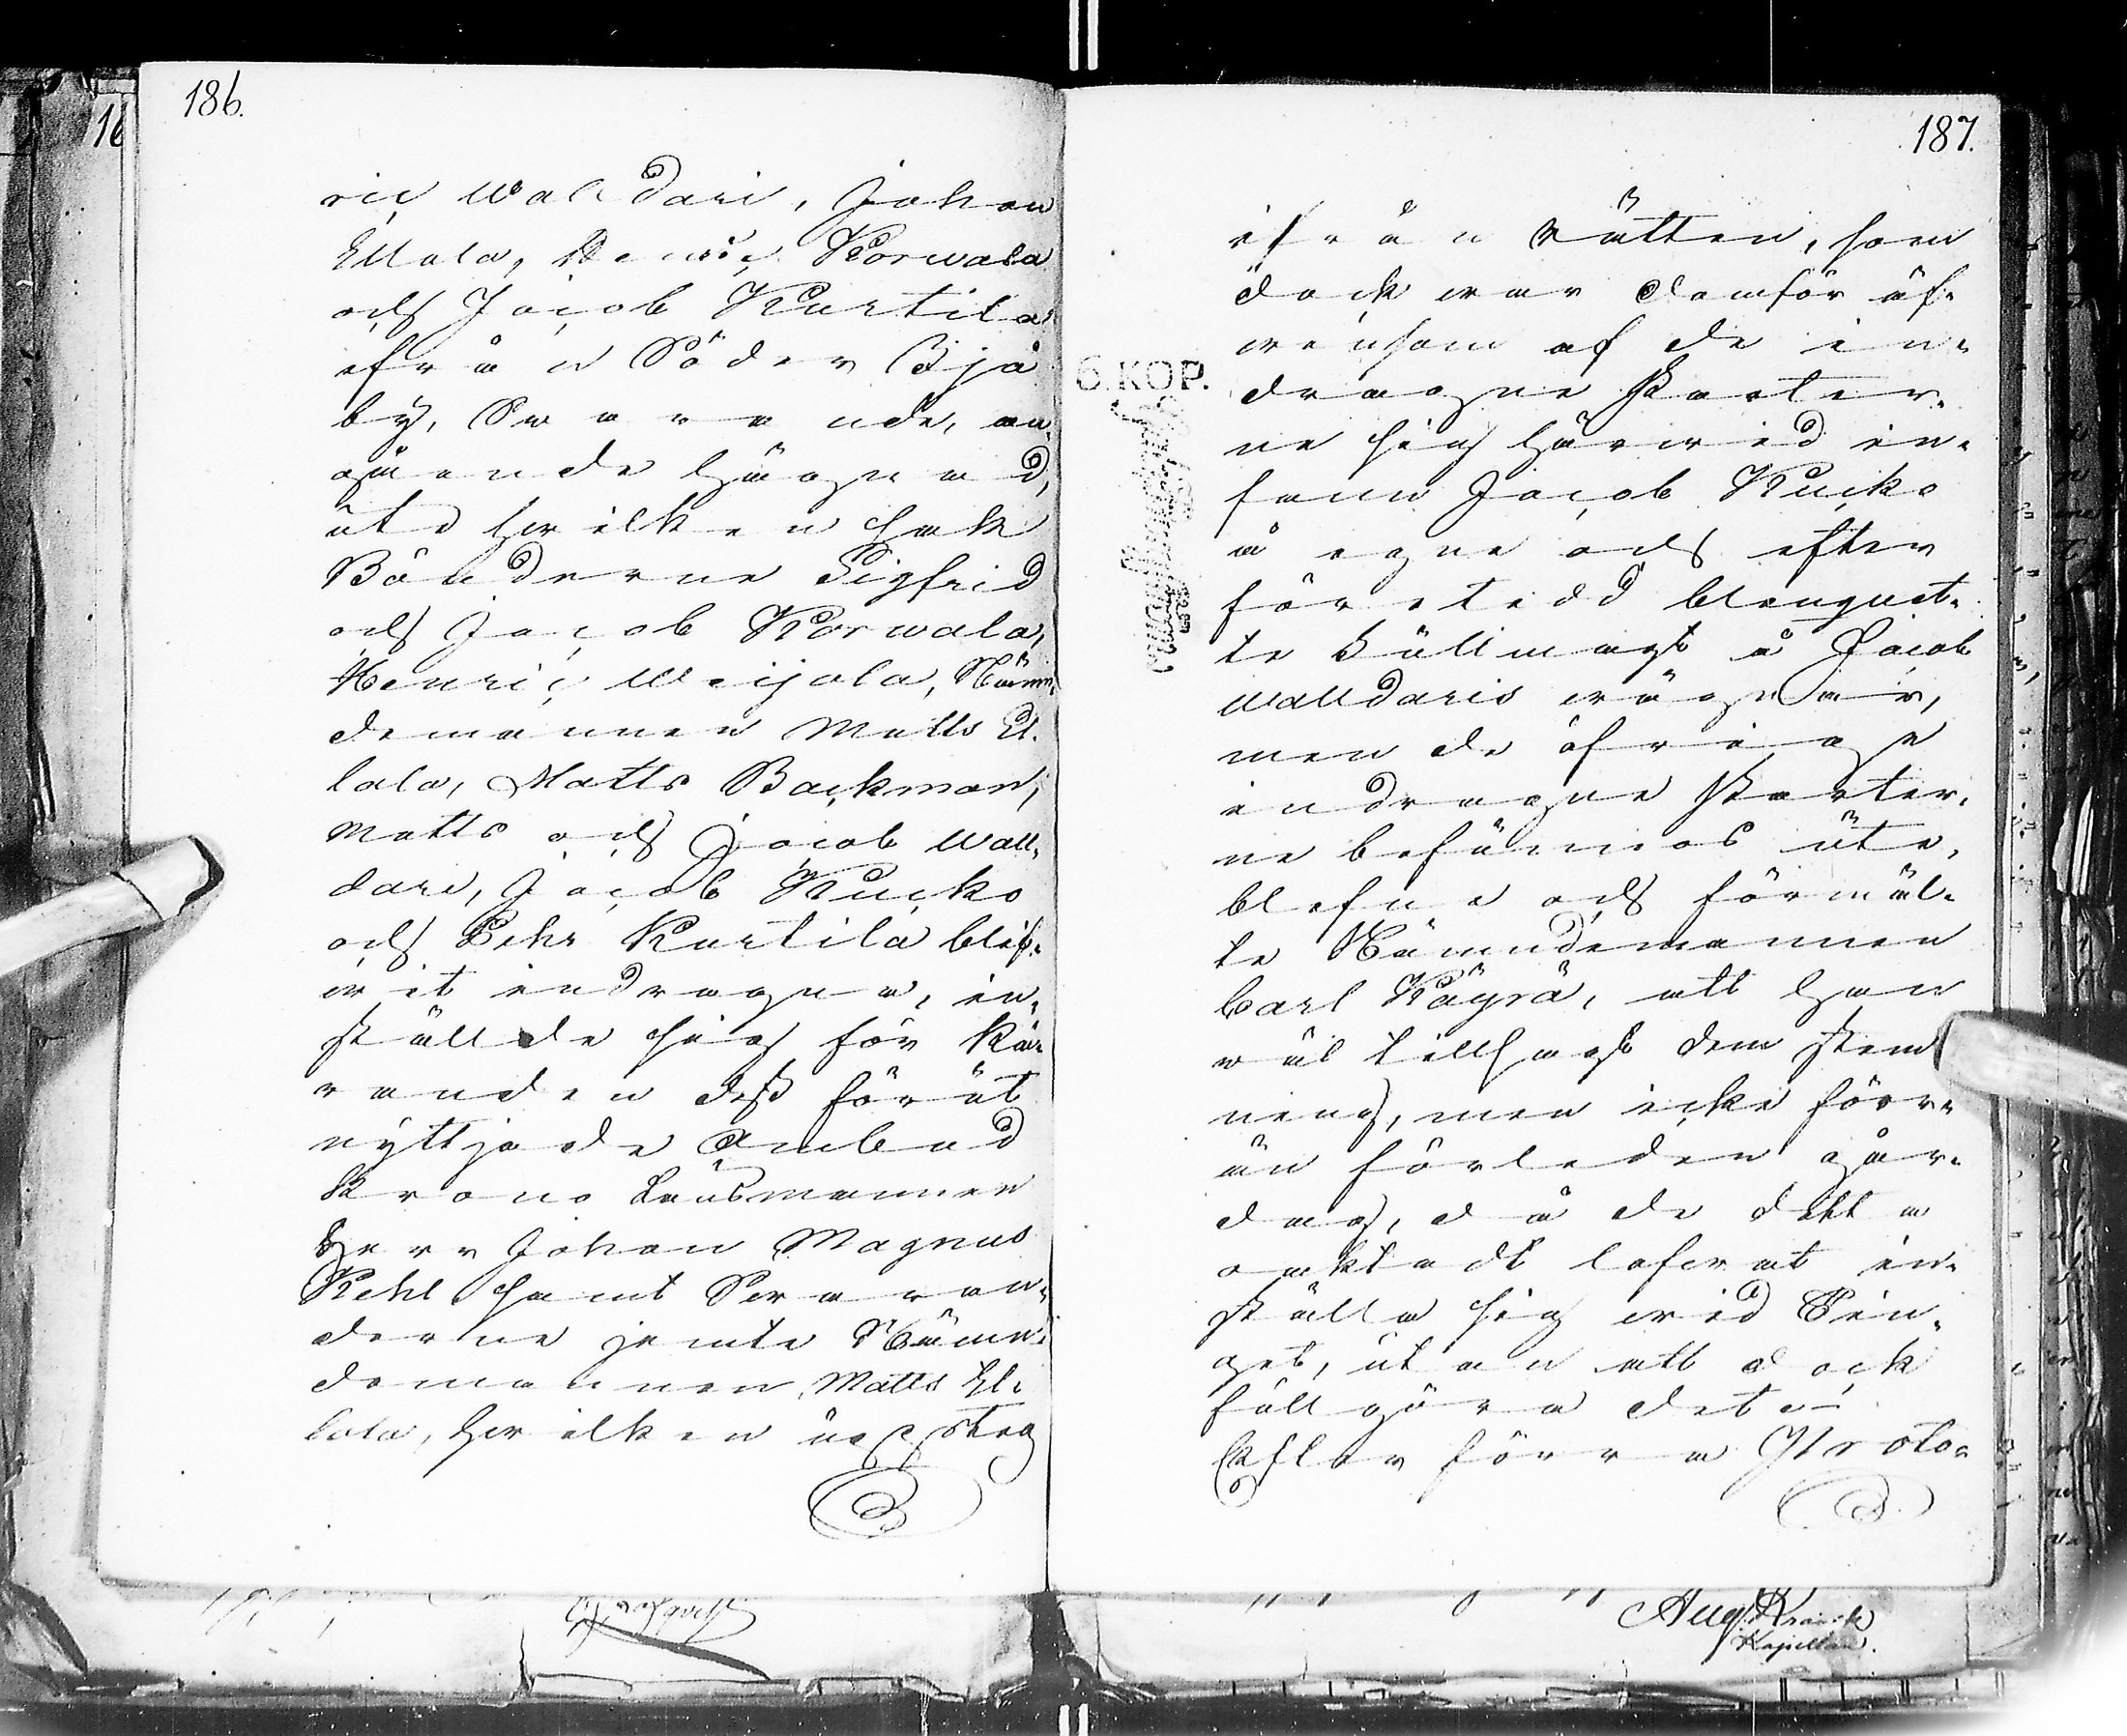 186.
ric Walldari, Johan
Ellala, Henric Korwala
och Jacob Kurtila
ifrån Söder Bijå
by, Swarande, an-
gående hägnad,
uti hvilken sak
Bönderne Sigfrid
och Jacob Korwala,
Henric Weijola, Nämn-
demannen Matts El-
lala, Matts Backman,
Matts och Jacob Wall-
dari, Jacob Kucko
och Pehr Kurtila blif-
wit indragna, in-
stälde sig för Kä-
randen dess förut
nyttjade Ombud
Krono Länsmannen
Herr Johan Magnus
Kehl samt Swaran-
derne jemte Nämn-
demannen Matts El-
lala, hwilken uppsteg
187.
ifrån Rätten, som
dock war domför äf-
wensom af de in-
dragne Parter-
ne sig härwid in-
fann Jacob Kucko
å egne och efter
företedd blanquet-
te Fullmagt å Jacob
Walldaris wägnar,
men de öfrige
indragne Parter-
ne befunnos ute-
blefne och förmäl-
te Nämndemannen
Carl Käyrä, att han
wäl tillsagt dem stäm
ning, men icke förr
än förleden går-
dag, då de detta
oaktadt lofwat in-
ställa sig wid Tin-
get, utan att dock
fullgöra det.
Efter förra Proto-
6. KOP.
Aug. Kranck
Kapellan.